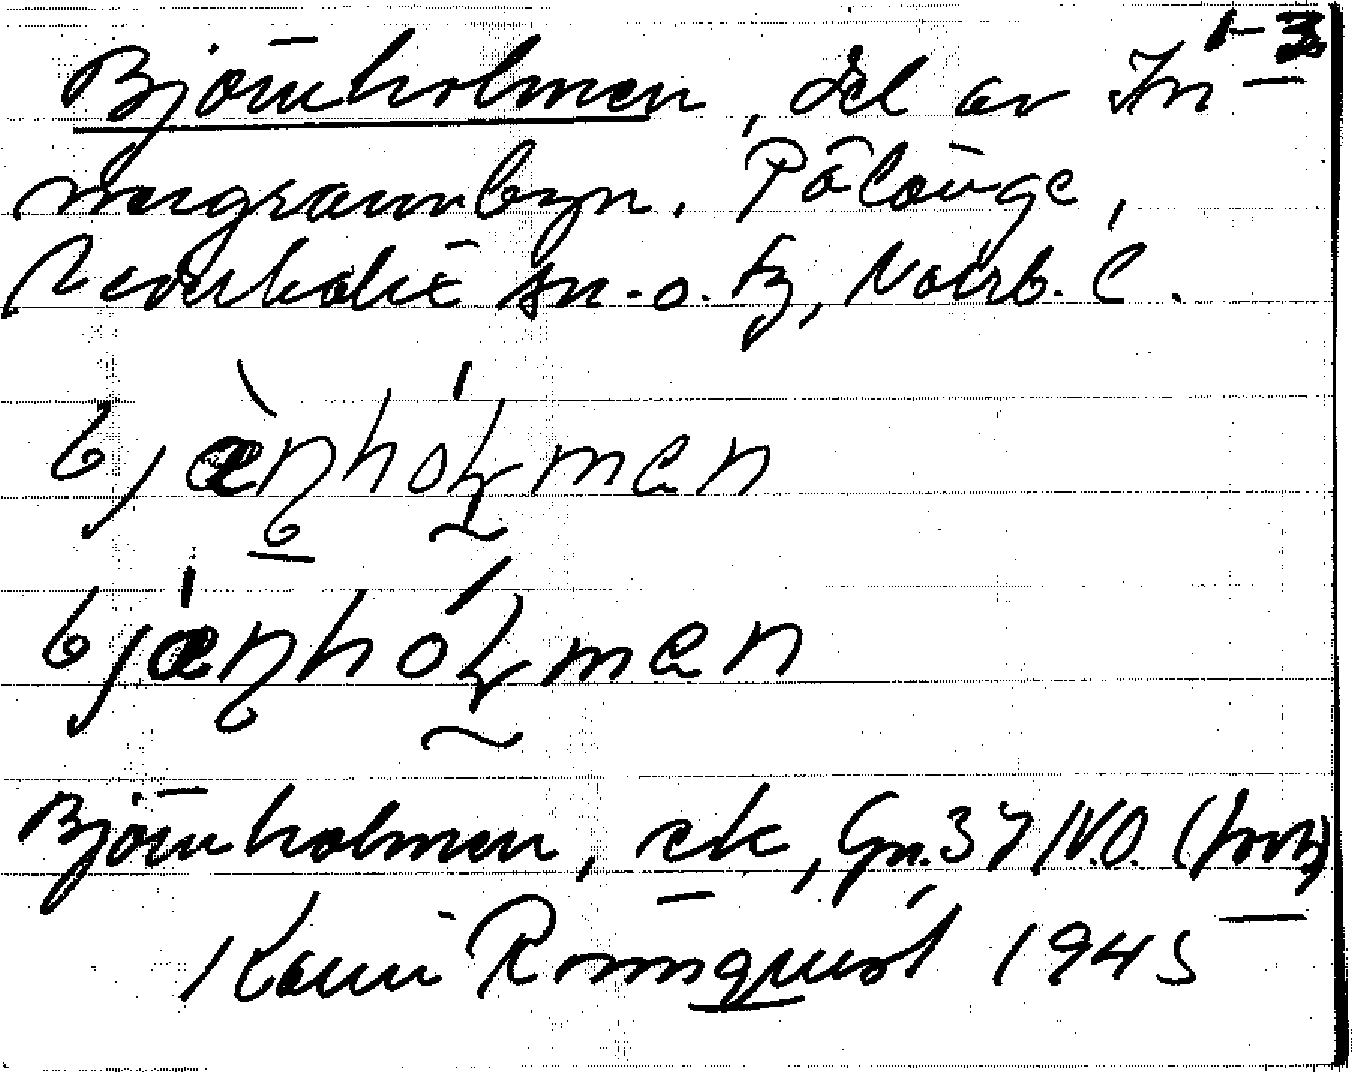 1-3
Björnholmen, del av In-
nergrannbyn. Pålänge,
Nederkalix sn. o. tg, Norrb. l.
bjæ̀ɳhóɽmen
bjǽɳhóɽmen
Björnholmen, ek, Gn. 37 N.O.
Karin Rönnquist 1945